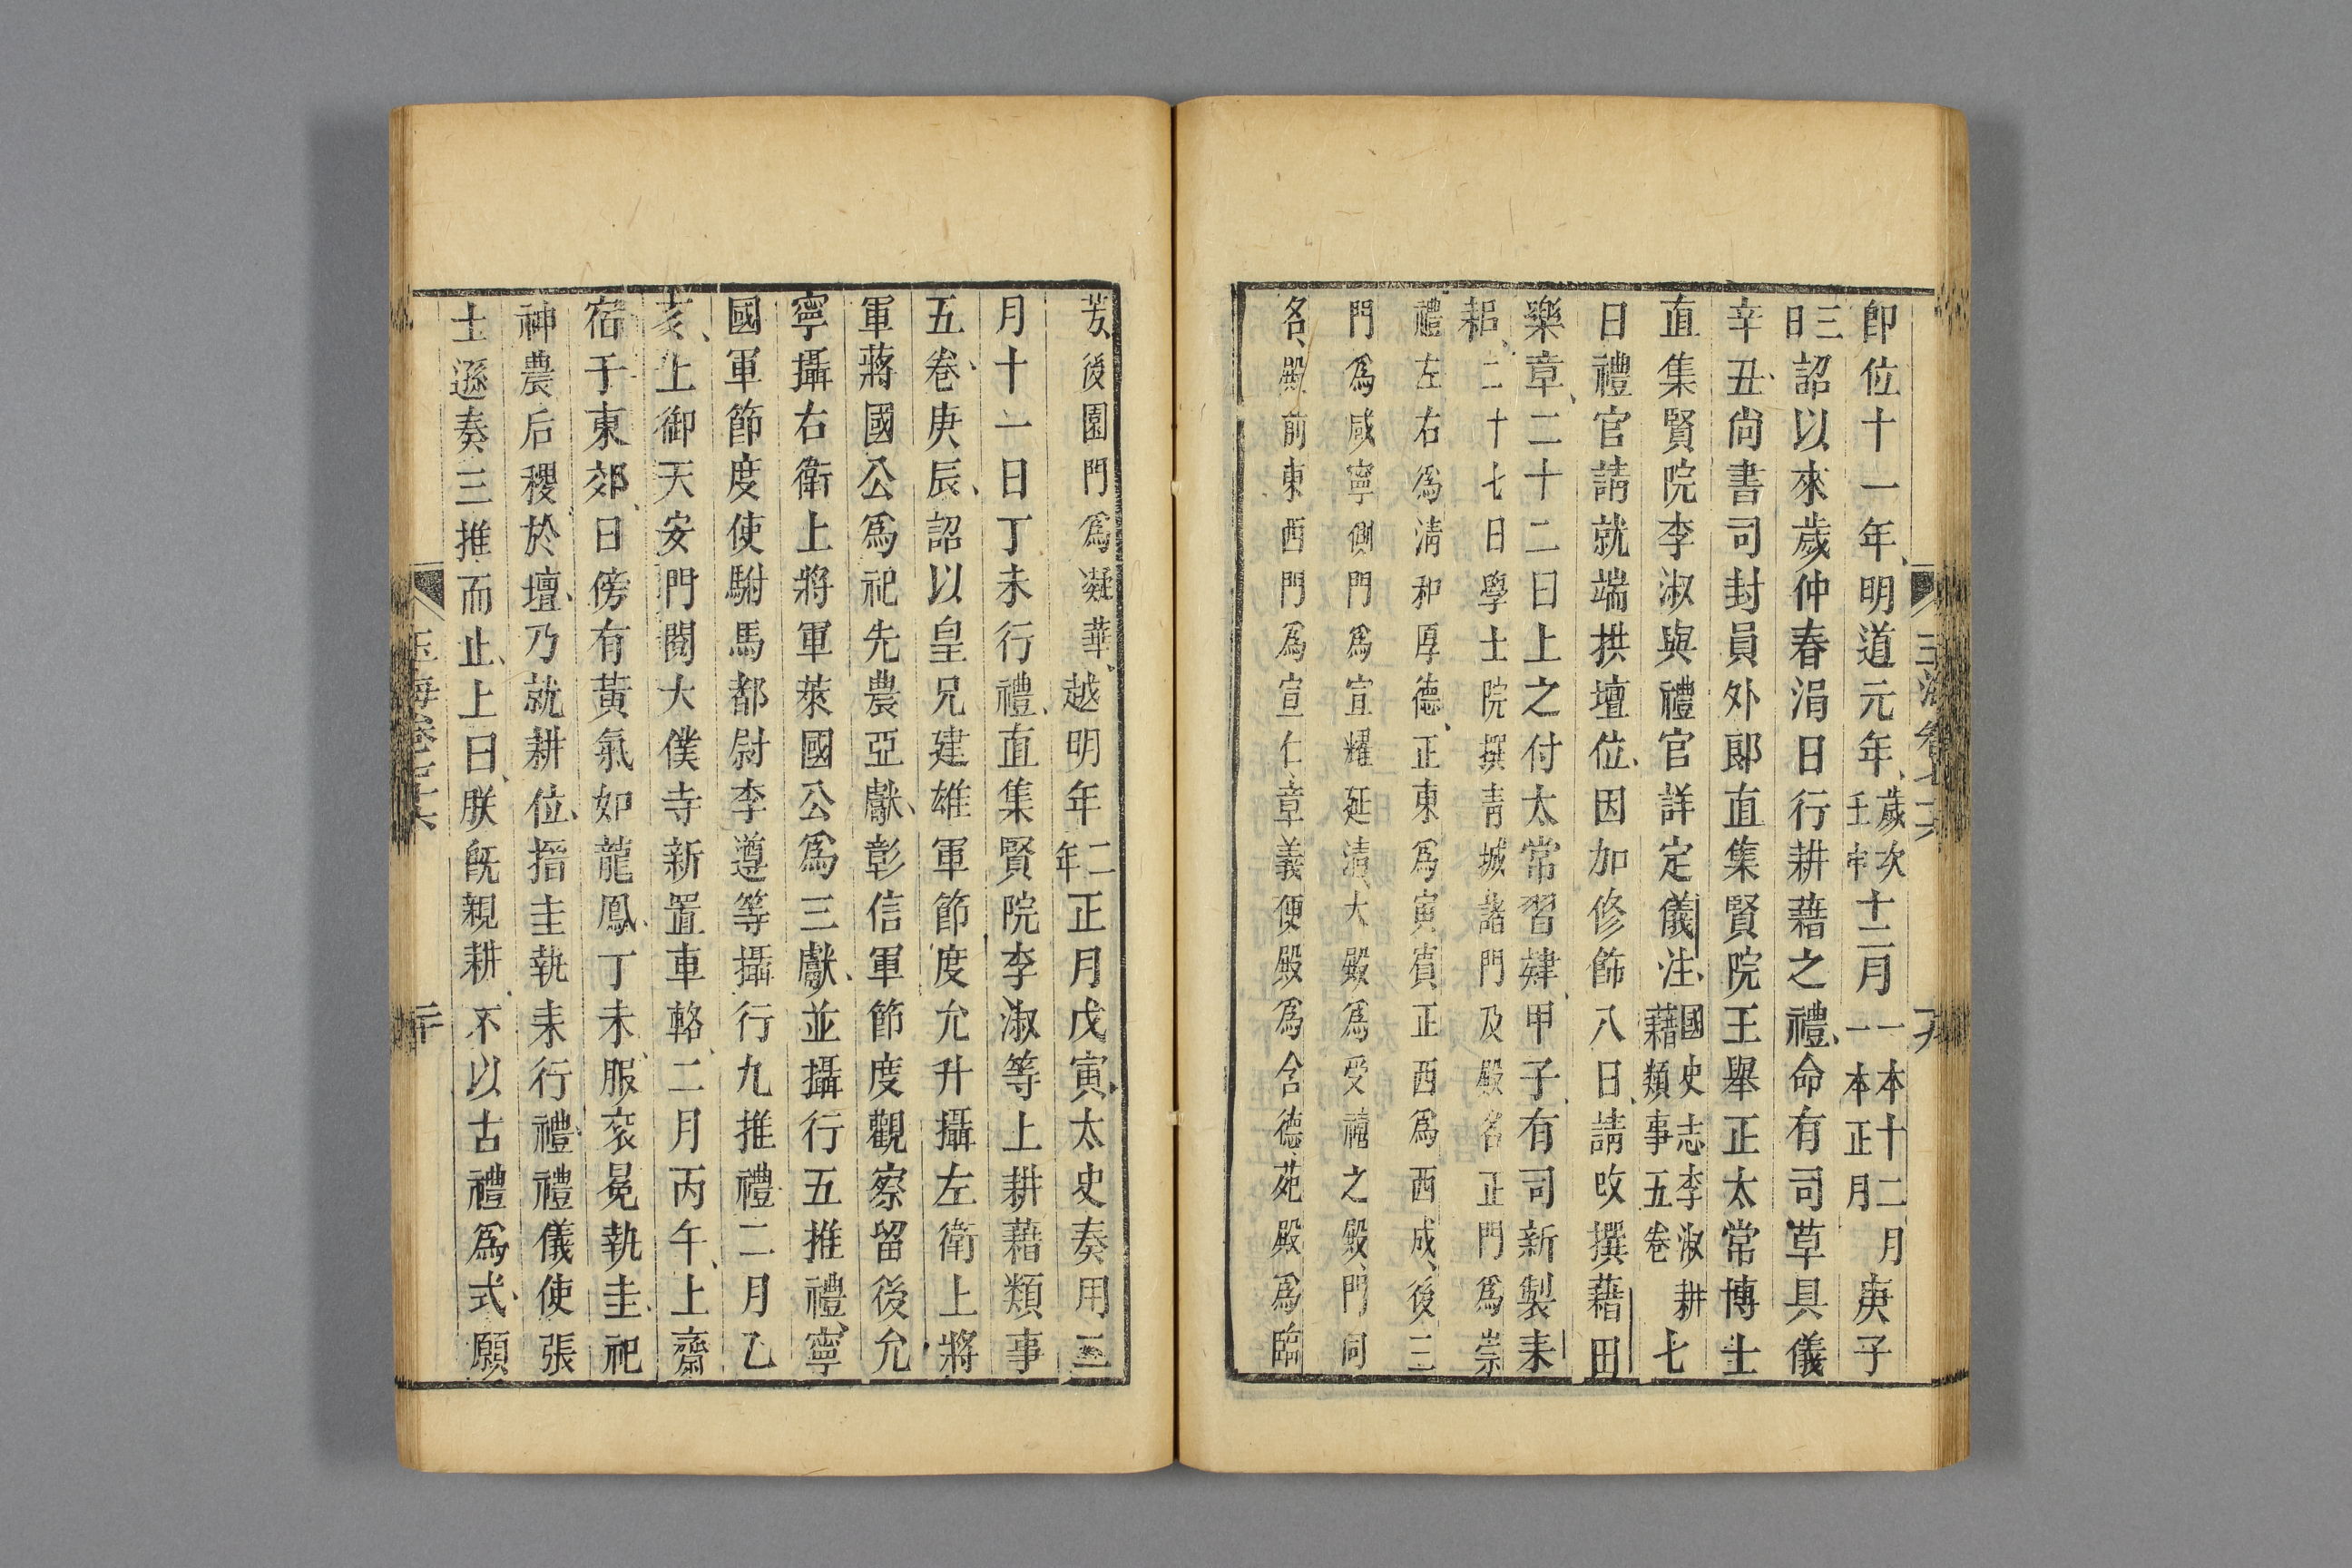 即位十一年明道元年歲次壬申十二月一本十二月一本正月庚子
三日詔以來歲仲春涓日行耕藉之禮命有司草具儀
辛丑尚書司封員外郎直集賢院王舉正太常博士
直集賢院李淑與禮官詳定儀注國史志李淑耕藉類事五卷七
日禮官請就端拱壇位因加修飾八日請改撰藉田
樂章二十二日上之付太常習肄甲子有司新製耒
耜二十七日學士院撰青城諸門及殿名正門為崇
禮左右為清和厚德正東為寅賓正西為西成後三
門為咸寧側門為宣耀延清大殿為受禧之殿門同
名殿前東西門為宣仁章義便殿為含德苑殿為臨
玉海卷七十六
十九
芳後園門為凝華越明年二年正月戊寅太史奏用二
月十一日丁未行禮直集賢院李淑等上耕藉類事
五卷庚辰詔以皇兄建雄軍節度允升攝左衛上將
軍蔣國公為祀先農亞獻彰信軍節度觀察留後允
寧攝右衛上將軍萊國公為三獻並攝行五推禮寧
國軍節度使駙馬都尉李遵等攝行九推禮二月乙
亥上御天安門閱大僕寺新置車輅二月丙午上齋
宿于東郊日傍有黃氣如龍鳳丁未服袞冕執圭祀
神農后稷於壇乃就耕位搢圭執耒行禮禮儀使張
士遜奏三推而止上曰朕既親耕不以古禮為式願
玉海卷七十六
二十